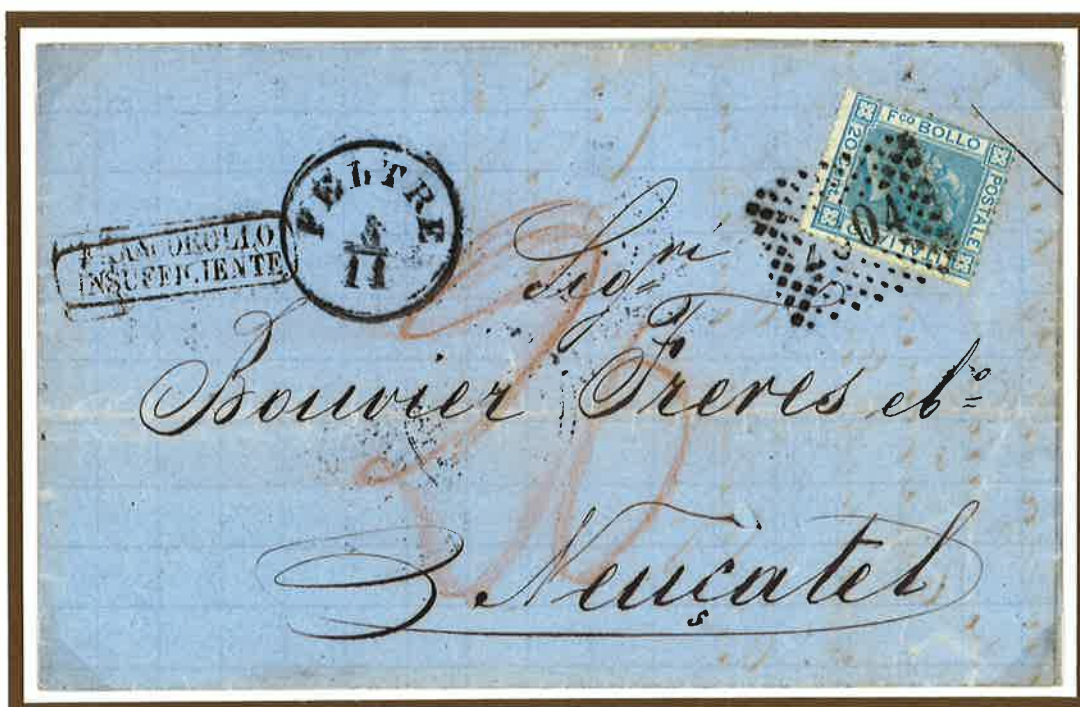 FRANCOBOLLO
INSUFFICIENTE
FELTRE
11
Fco BOLLO
POSTALE
ITALIANO
20 Cent
20
Sigri
Bouvier Freres
Neuçatel